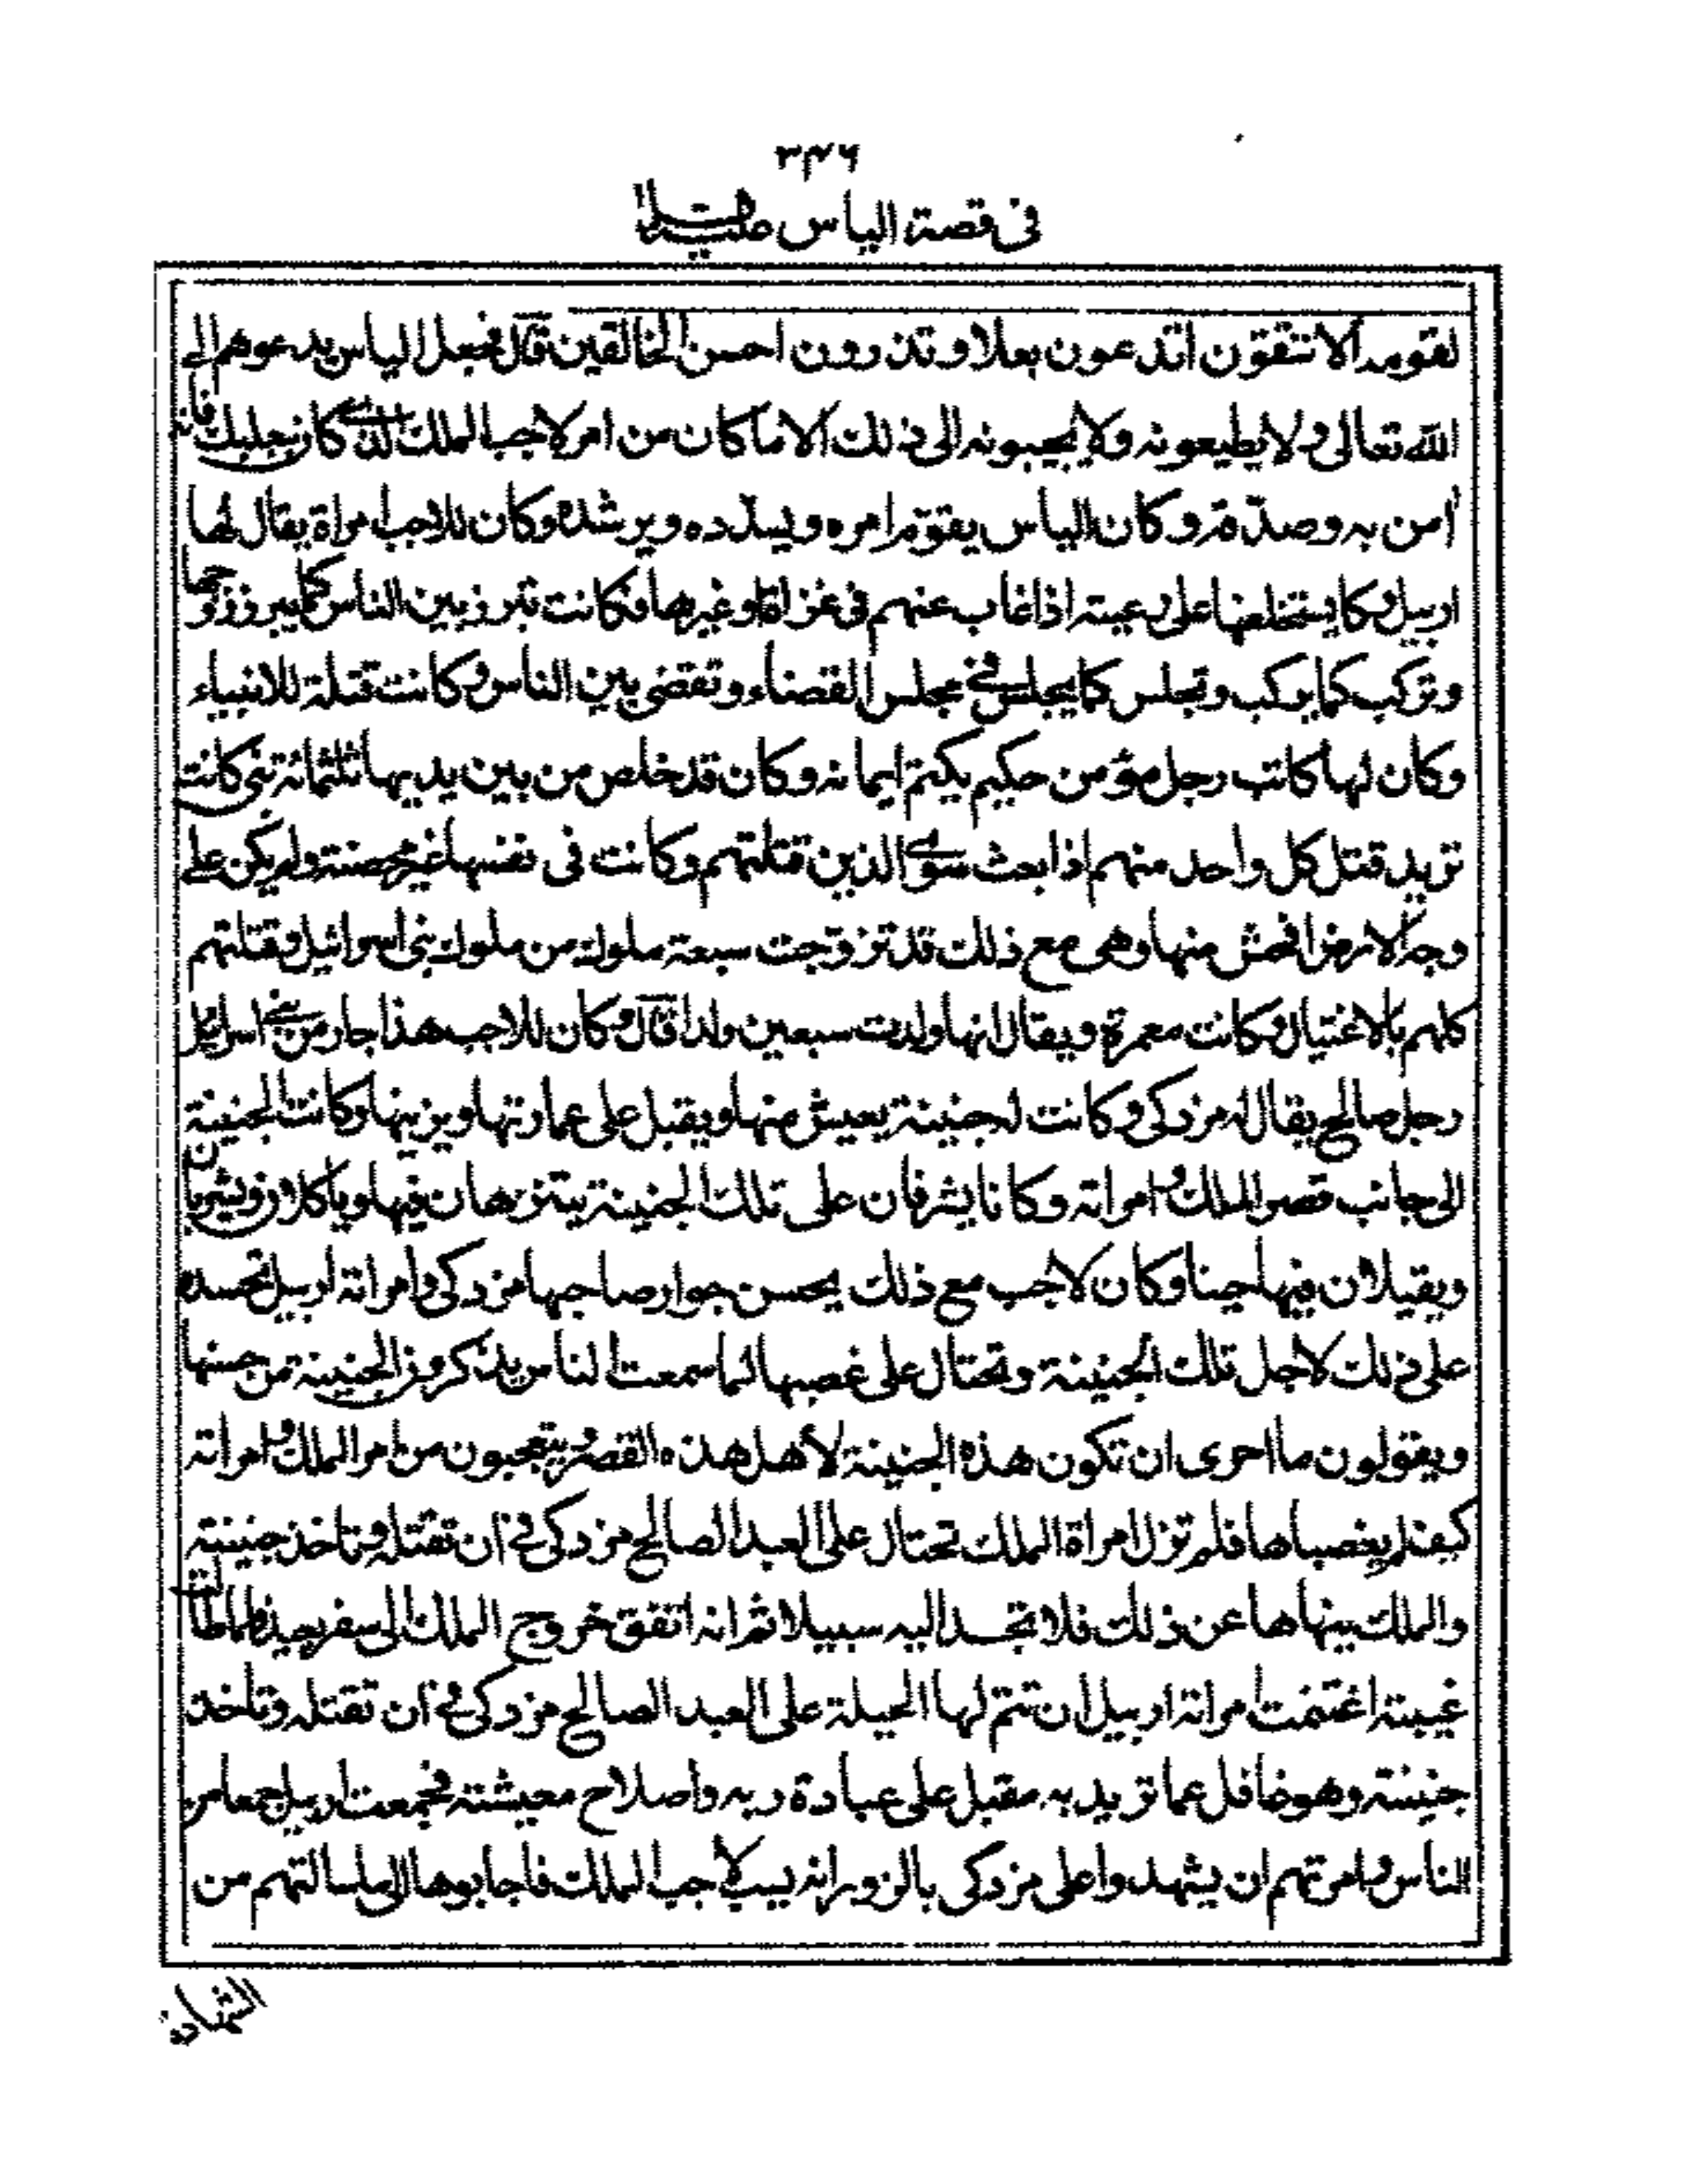 ٣٤٦
فى قصة الياس عليه السلام
لقومه ألا تتقون اتدعون بعلا وتذرون احسن الخالقين قال فجعل الياس يدعوهم الى
الله تعالى ولا يطيعونه ولا يجيبونه الى ذلك الا ما كان من امر لاجب الملك الذى كان ببعلبك فانه
آمن به وصدّقه وكان الياس يقوّم امره ويسدّده ويرشده وكان للاجب امراة يقال لها
اربيل وكا يستخلفها على رعيته اذا غاب عنهم فى غزاة او غيرها فكانت تبرز بين الناس كما يبرز زوجها
وتركب كما يركب وتجلس كما يجلس فى مجلس القضاء وتقضى بين الناس وكانت قتلة للانبياء
وكان لها كاتب رجل مؤمن حكيم يكتم ايمانه وكان قد خلص من بين يديها ثلثمائة نبى كانت
تريد قتل كل واحد منهم اذا بعث سوى الذين قتلتهم وكانت فى نفسها غير محصنة ولم يكن على
وجه الارض افحش منها وهى مع ذلك قد تزوّجت سبعة ملوك من ملوك بنى اسرائيل وقتلتهم
كلهم بالاغتيال وكانت معمرة ويقال انها ولدت سبعين ولدا قال وكان للاجب هذا جار من بنى اسرائيل
رجل صالح يقال له مزدكى وكانت له جنينة يعيش منها ويقبل على عمارتها ويزينها وكانت الجنينة
الى جانب قصر الملك وامراته وكانا يشرفان على تلك الجنينة يتنزهان فيها وياكلان ويشربان
ويقيلان فيها احيانا وكان لاجب مع ذلك يحسن جوار صاحبها مزدكى وامراته اربيل تحسده
على ذلك لاجل تلك الجنينة وتحتال على غصبها لما سمعت الناس يذكرون الجنينة من حسنها
ويقولون ما احرى ان تكون هذه الجنينة لأهل هذه القصر ويتعجبون من امر الملك وامراته
كيف لم يغصباها فلم تزل امراة الملك تحتال على العبد الصالح مزدكى فى ان تقتله وتاخذ جنينته
والملك ينهاها عن ذلك فلا تجد اليه سبيلا ثم انه اتفق خروج الملك الى سفر بعيد فلما طالت
غيبته اغتنمت امراته اربيل ان تتم لها الحيلة على العبد الصالح مزدكى فى ان تقتله وتاخذ
جنينته وهو غافل عما تريد به مقبل على عبادة ربه واصلاح معيشته فجمعت اربيل جمعا من
الناس وامرتهم ان يشهدوا على مزدكى بالزور انه يسب لاجب الملك فاجابوها الى ما سالتهم من
الشهادة